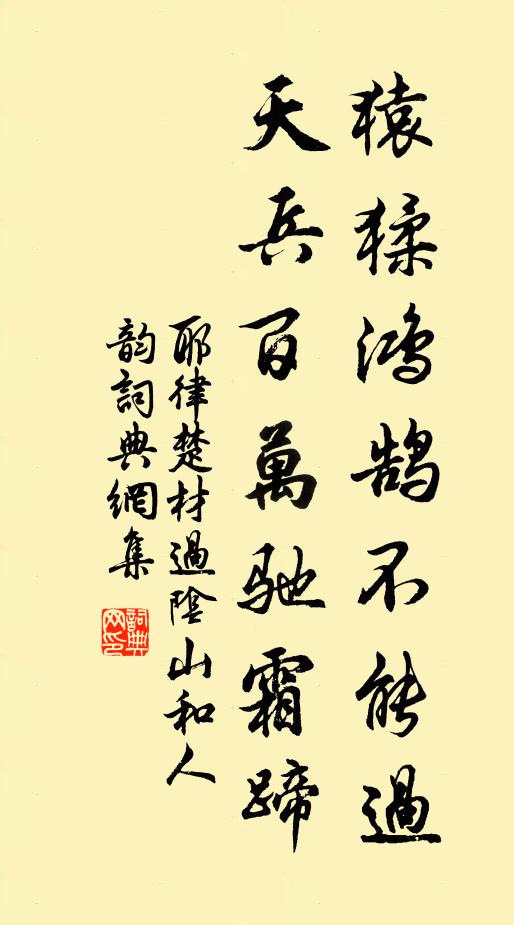 猿猱鴻鵠不能過
天兵百萬馳霜蹄
耶律楚材過陰山和人
韵詞典網集
詞典
网印